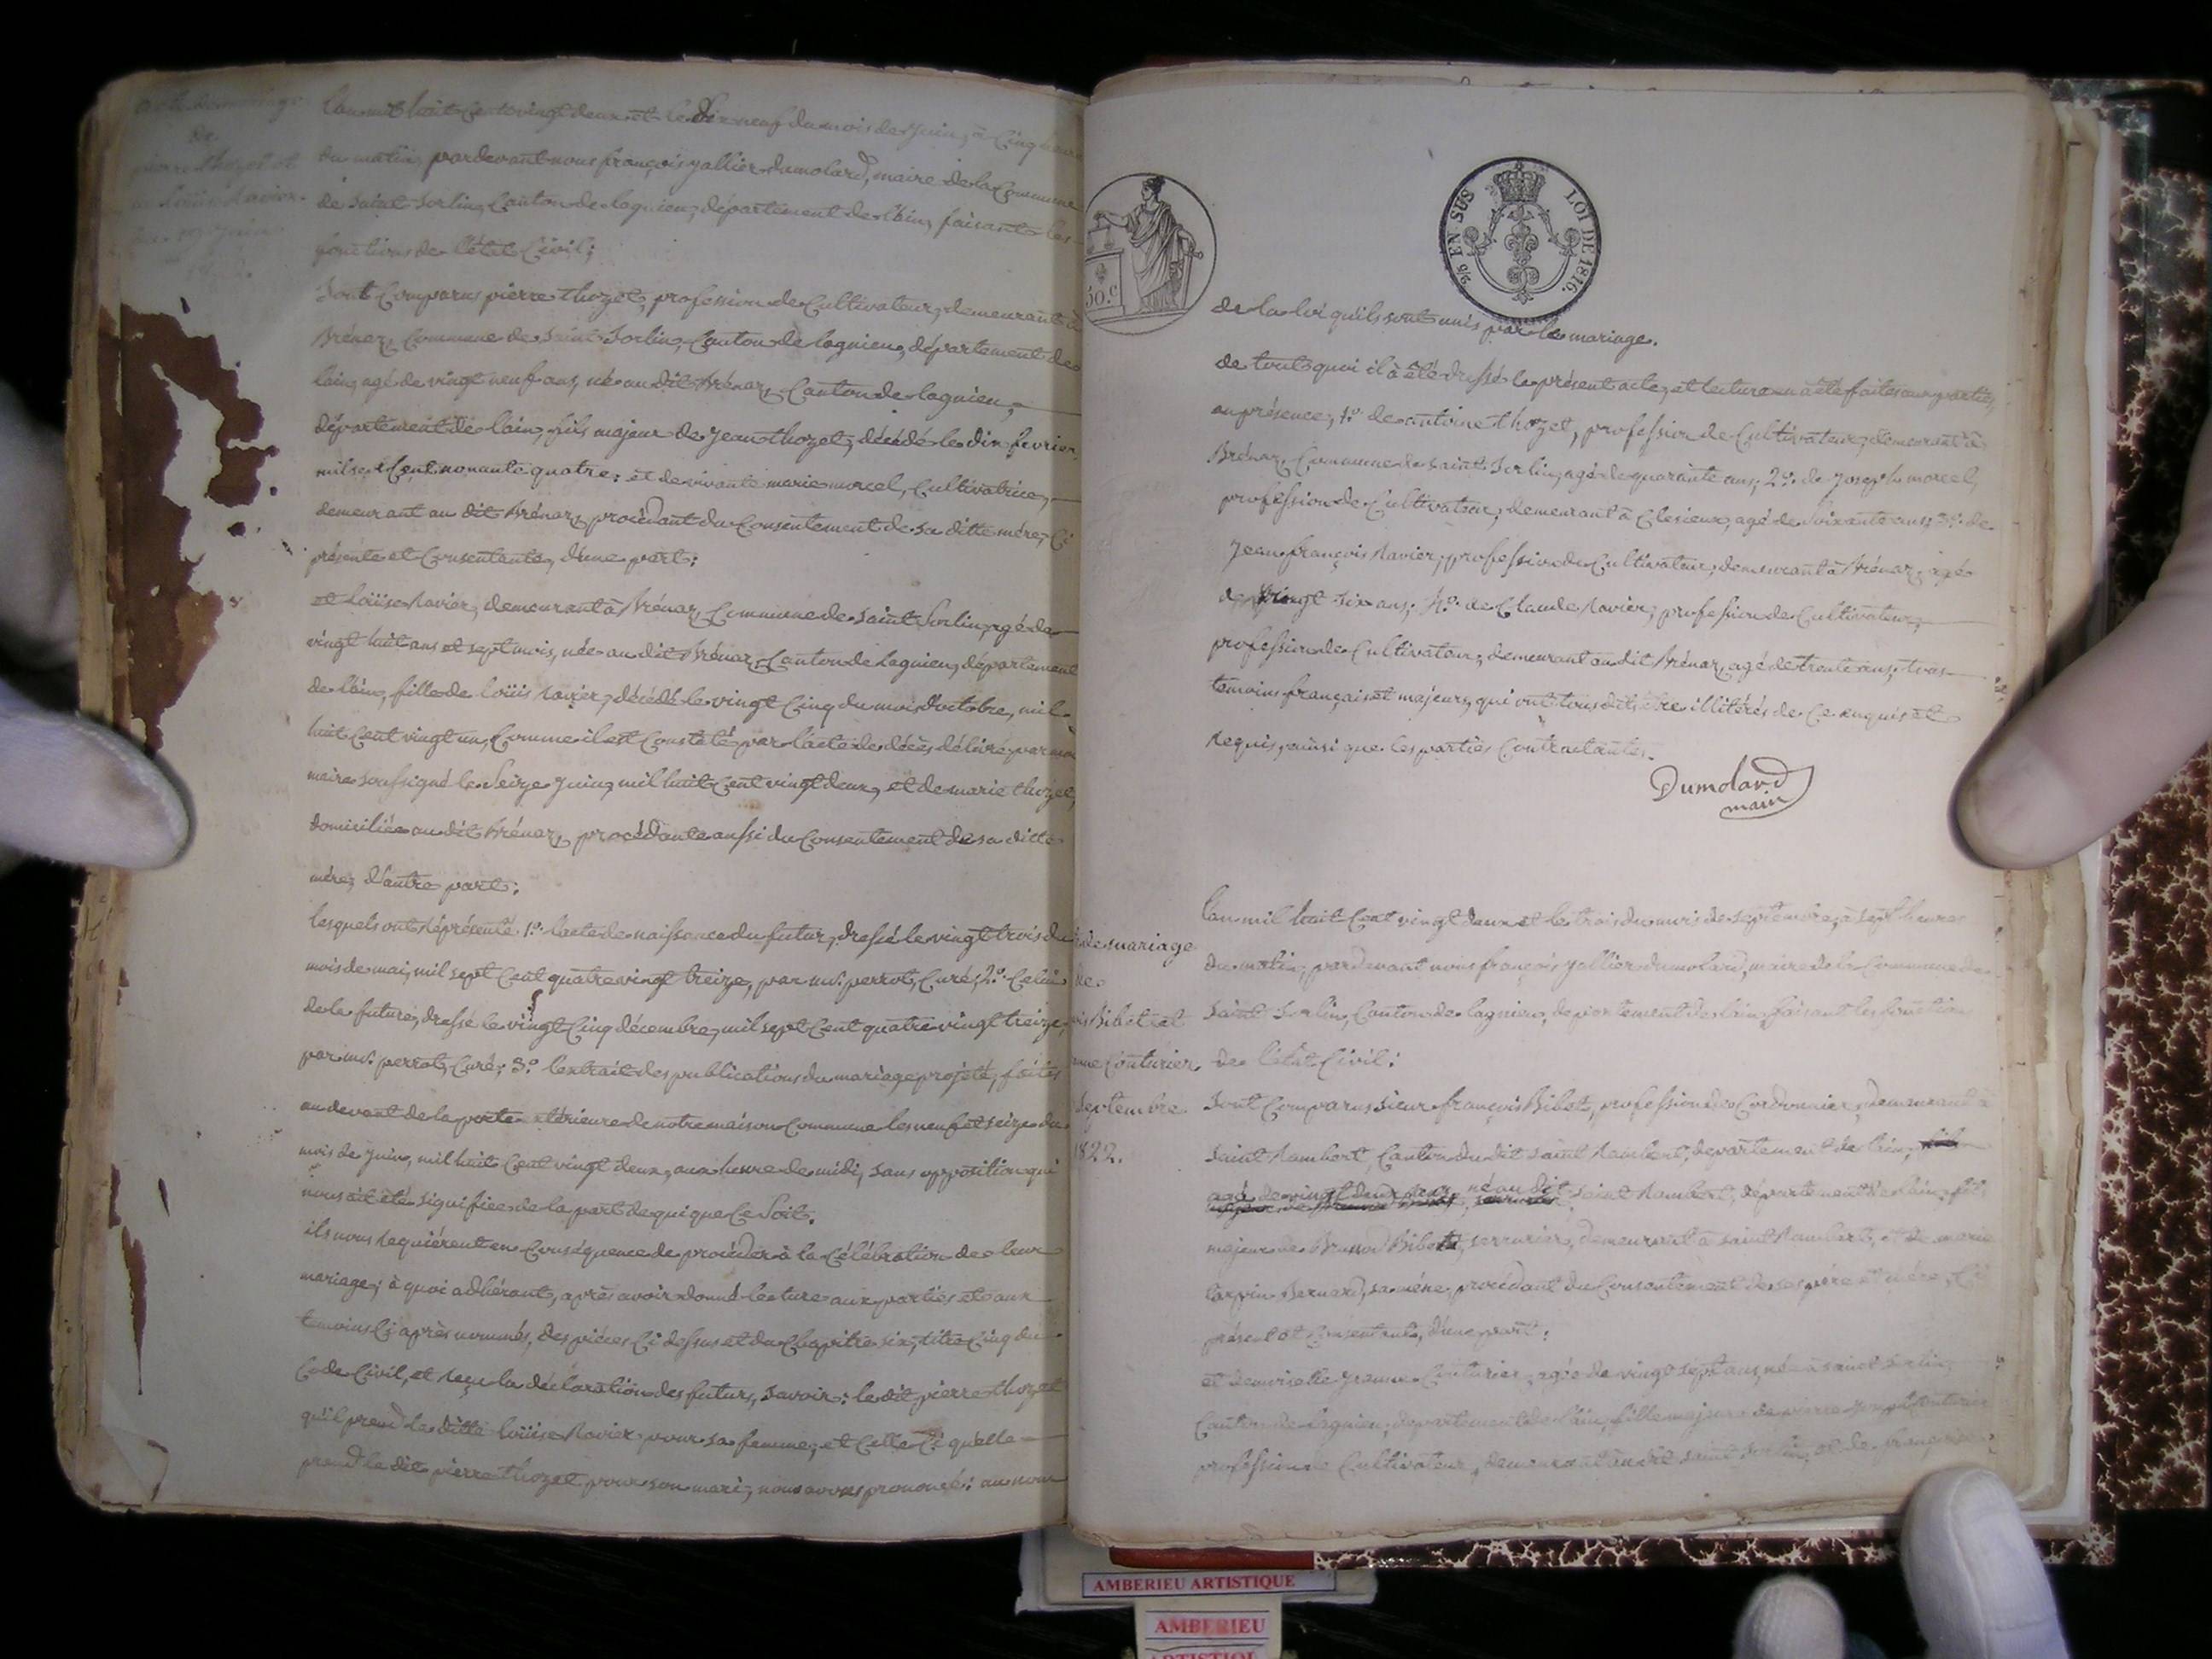 acte de mariage
de
pierre thozet et
de Loüise Ravier.
L'an mil huit cent vingt deux et le dix neuf du mois de juin, à cinq heures
du matin, pardevant nous françois jallier dumolard, maire de la Commune
de saint Sorlin, Canton de lagnieu, département de l'ain, faisant les
fonctions de l'état Civil;
Sont Comparus pierre thozet, profession de Cultivateur, demeurant à
Brénaz, Commune de saint Sorlin, Canton de lagnieu, département de
l'ain, agé de vingt neuf ans, né au dit Brénaz, Canton de lagnieu,
département de l'ain, fils majeur de jean thozet, décédé le dix fevrier
mil sept Cent nonante quatre; et de vivante marie morcel, Cultivatrice,
demeurant au dit Brénaz, procédant du Consentement de sa ditte mére, Ci
présente et Consentante, d'une part;
et Loüise Ravier, demeurant à Brénaz, Commune de saint Sorlin, agé de
vingt huit ans et sept mois, née au dit Brénaz, Canton de Lagnieu, département
de l'ain, fille de loüis Ravier, décédé le vingt Cinq du mois d'octobre, mil
huit Cent vingt un, Comme il est Constaté par l'acte de décès délivré par moi
maire soussigné le Seize juin, mil huit Cent vingt deux, et de marie thozet,
domiciliée au dit Brénaz, procédante aussi du Consentement de sa ditte
mére, d'autre part;
lesquels ont réprésenté 1.º l'acte de naissance du futur, dressé le vingt trois du
mois de mai, mil sept Cent quatre vingt treize, par mr. perrot, Curé; 2.º Celui
de la future, dressé le vingt Cinq décembre, mil sept Cent quatre vingt treize,
par mr. perrot, Curé; 3.º l'extrait des publications du mariage projeté, faites
au devant de la porte extérieure de notre maison Commune les neuf et seize du
mois de juin, mil huit Cent vingt deux, aux heure de midi, sans opposition qui
nous ait été signifiée de la part de qui que Ce Soit.
ils nous requiérent en Conséquence de procéder à la Célébration de leur
mariage; à quoi adhérant, après avoir donné lecture aux parties et aux
temoins Ci après nommés, des piéces Ci dessus et du Chapitre six, titre Cinq du
Code Civil, et reçu la déclaration des futurs, savoir: le dit pierre thozet
qu'il prend la ditte loüise Ravier pour sa femme; et Celle Ci qu'elle
prend le dit pierre thozet pour son mari; nous avons prononcé: au nom
50.C
2/5 EN SUS
LOI DE 1816.
de la loi qu'ils sont unis par le mariage.
de tout quoi il à été dressé le présent acte, et lecture en à été faites aux parties,
en présence, 1.º de antoine thozet, profession de Cultivateur, demeurant à
Brénaz, Commune de saint Sorlin, agé de quarante ans; 2.º de joseph morcel,
profession de Cultivateur, demeurant à Clesieux, agé de Soixante ans; 3.º de
jean françois Ravier, profession de Cultivateur, demeurant à Brénaz, agé
de vingt six ans; 4.º de Claude Ravier, profession de Cultivateur,
profession de Cultivateur, demeurant au dit Brénaz, agé de trente ans, tous
témoins français et majeurs, qui ont tous dits être illitérés de Ce enquis et
requis, ainsi que les parties Contractantes.
Dumolard
maire
de mariage
de
Bibet et
Couturier.
Septembre
1822.
L'an mil huit Cent vingt deux et le trois du mois de septembre, à sept heures
du matin, pardevant nous françois jallier dumolard, maire de la Commune de
saint Sorlin, Canton de lagnieu, departement de l'ain, faisant les fonction
de l'état Civil;
Sont Comparus sieur françois Bibet, profession de Cordonnier, demeurant à
saint Rambert, Canton du dit saint Rambert, departement de l'ain,
agé de vingt deux ans, né au dit saint Rambert, département de l'ain, fils
majeur de Bibet, serrurier, demeurant à saint Rambert, et de marie
Bernard, sa mére, procédant du Consentement de ses pére et mére, Ci
présent et Consentants, d'une part;
et demoiselle jeanne Couturier, agée de vingt sept ans, né à saint Sorlin,
Canton de lagnieu, departement de l'ain, fille majeure de pierre joseph Couturier
profession de Cultivateur, demeurant au dit saint Sorlin, et de
AMBERIEU ARTISTIQUE
AMBERIEU
ARTISTIQUE